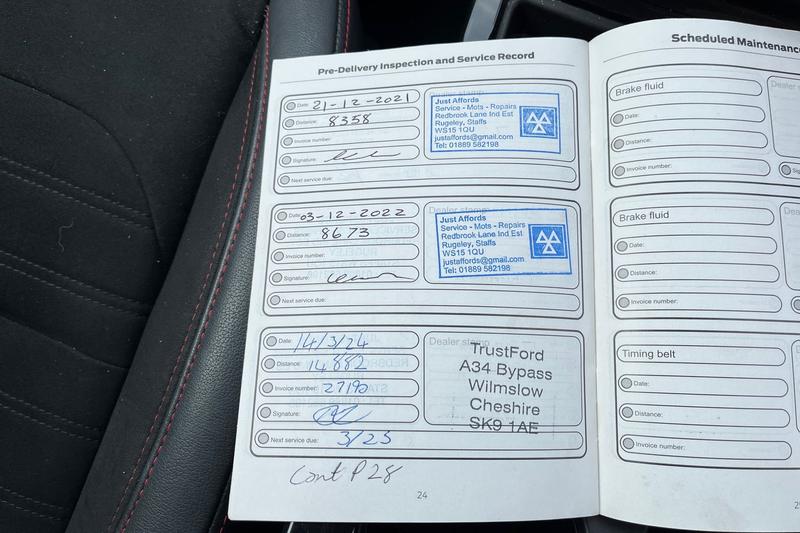 Pre-Delivery Inspection and Service Record
Date: 21-12-2021
Distance: 8358
Invoice number:
Signature:
Next service due:
Dealer stamp
Just Affords
Service - Mots - Repairs
Redbrook Lane Ind Est
Rugeley, Staffs
WS15 1QU
justaffords@gmail.com
Tel: 01889 582198
Date: 03-12-2022
Distance: 8673
Invoice number:
Signature:
Next service due:
Dealer stamp
Just Affords
Service - Mots - Repairs
Redbrook Lane Ind Est
Rugeley, Staffs
WS15 1QU
justaffords@gmail.com
Tel: 01889 582198
Date: 14/3/24
Distance: 14882
Invoice number: 27190
Signature:
Next service due: 3/25
Dealer stamp
TrustFord
A34 Bypass
Wilmslow
Cheshire
SK9 1AE
Cont P 28
24
Scheduled Maintenance
Brake fluid
Date:
Distance:
Invoice number:
Dealer
Brake fluid
Date:
Distance:
Invoice number:
Timing belt
Date:
Distance:
Invoice number: